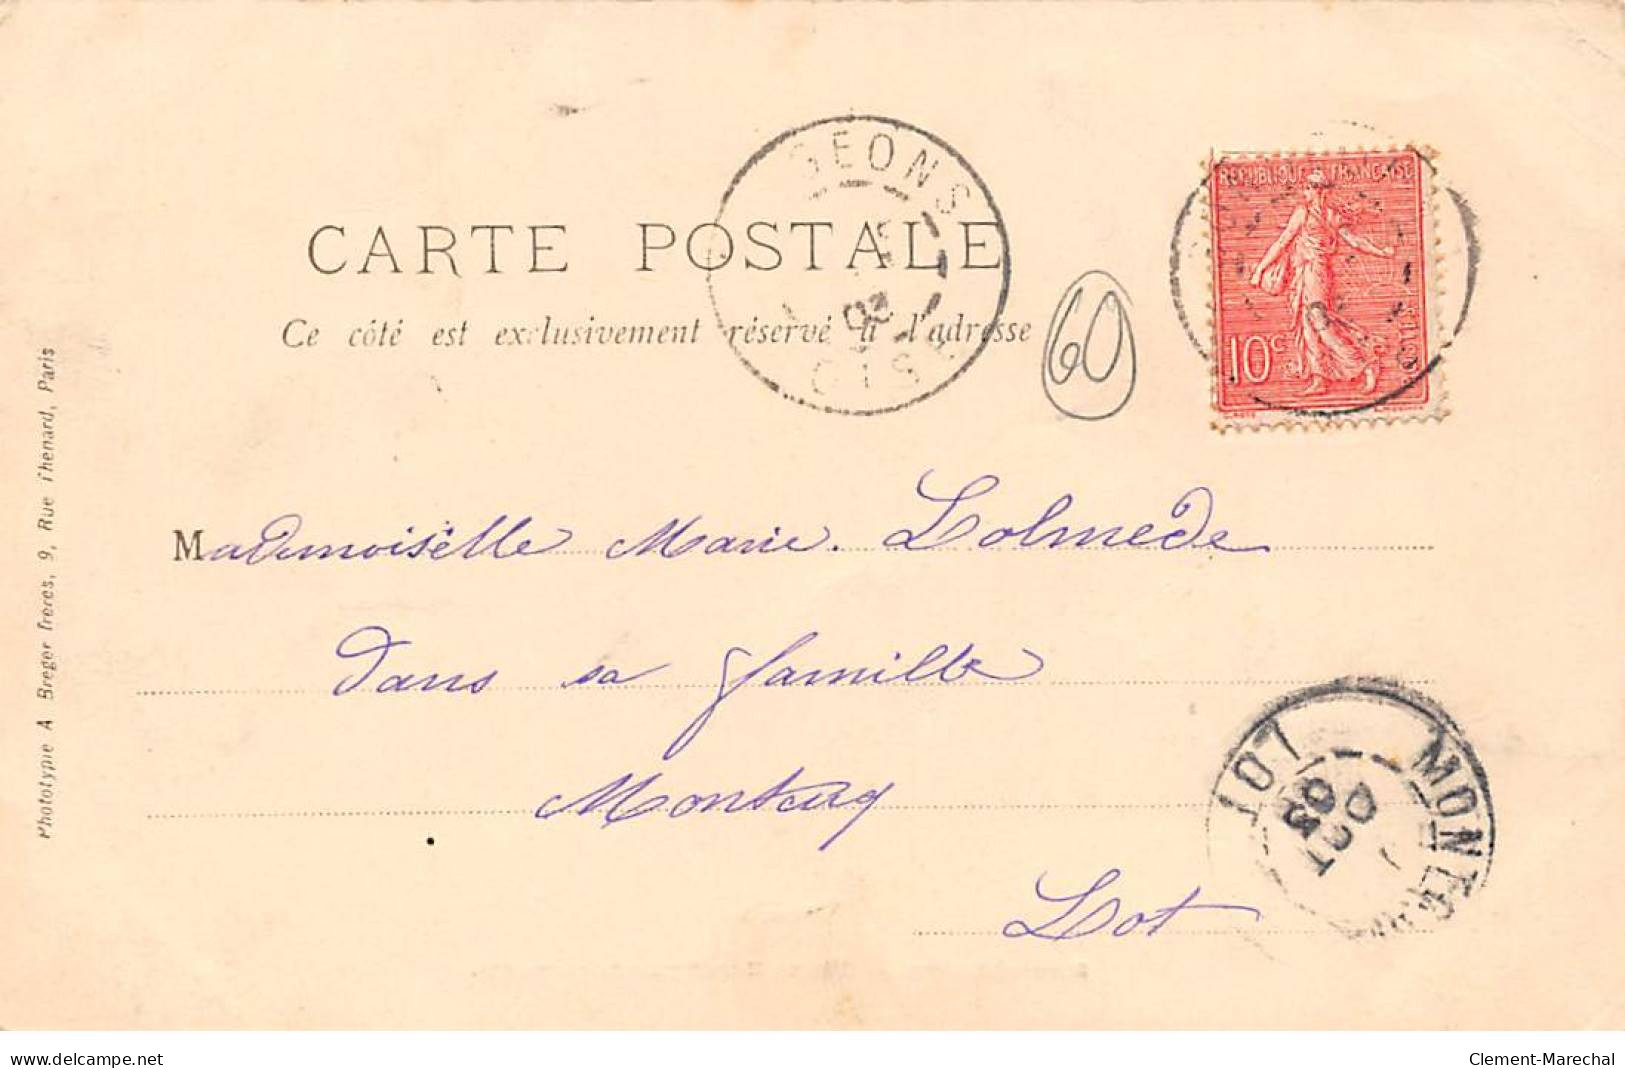 GEONS
OISE
03
RÉPUBLIQUE FRANÇAISE
10c
CARTE POSTALE
Ce côté est exclusivement réservé à l'adresse
60
Mademoiselle Marie Lolmede
Dans sa famille
Montcuq
Lot
LOT
OCT
03
Phototypie A Breger frères, 9, Rue Thenard, Paris
www.delcampe.net
Clement-Marechal